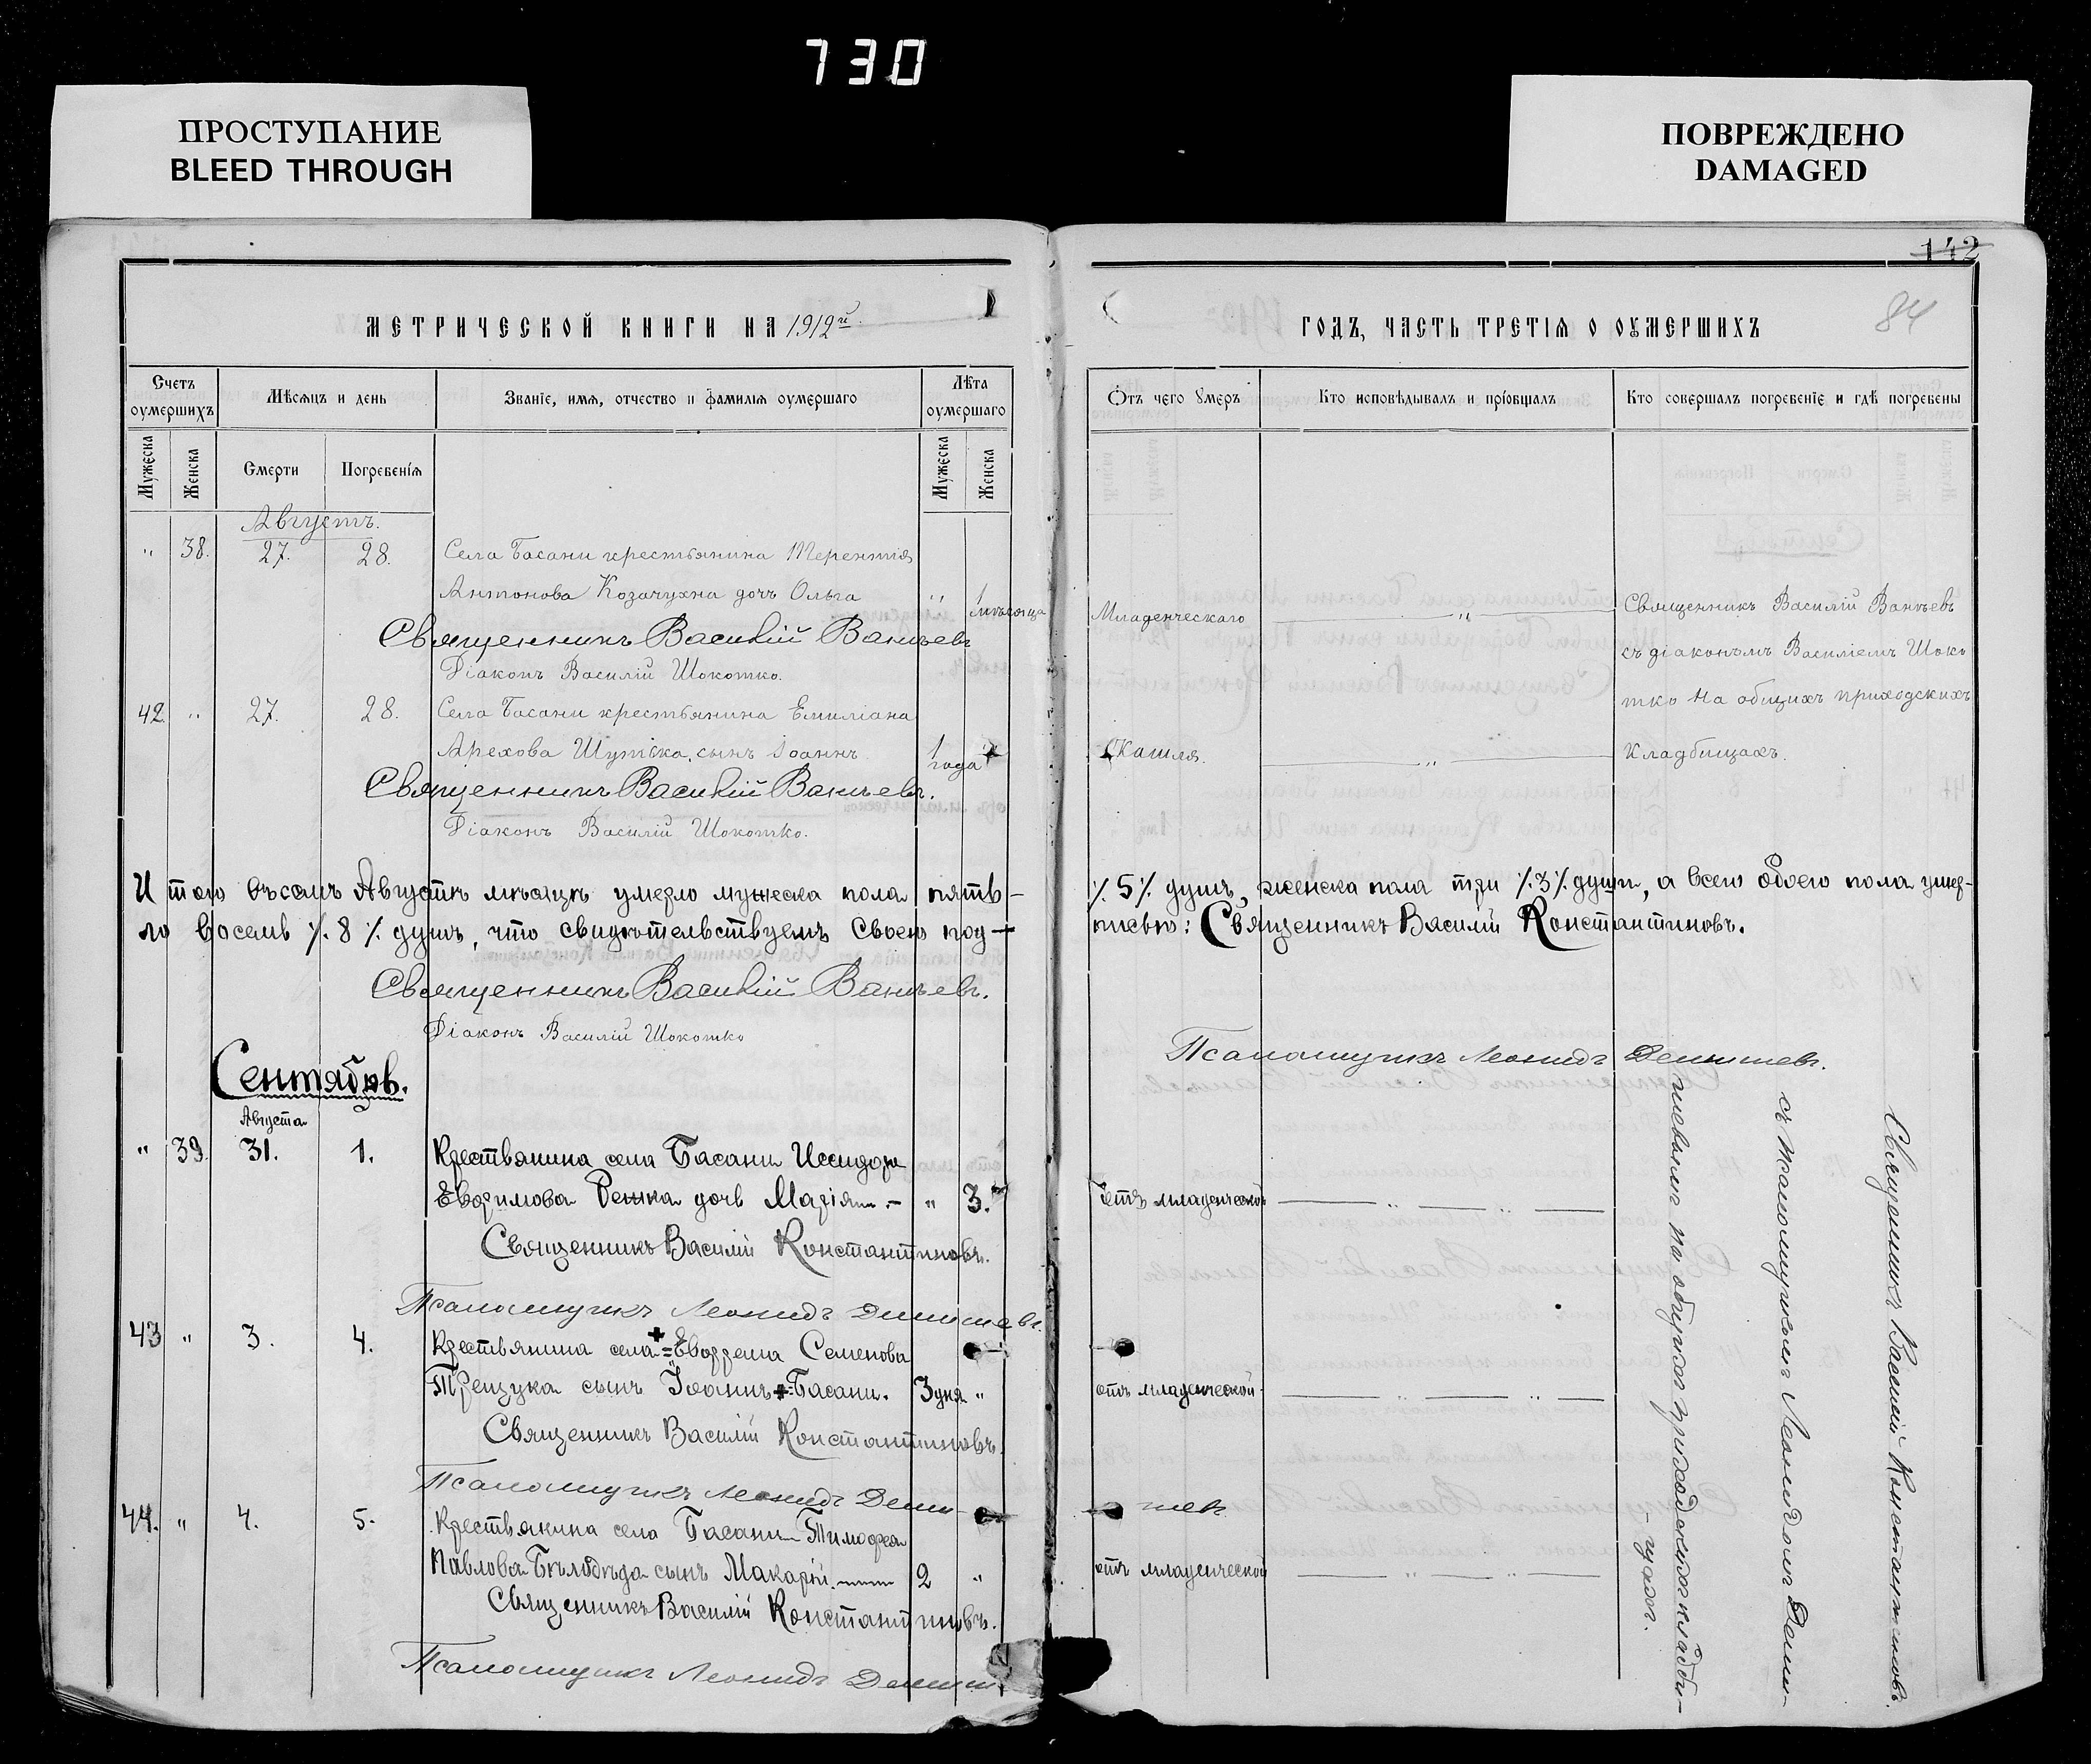 730
ПРОСТУПАНИЕ
BLEED THROUGH
ПОВРЕЖДЕНО
DAMAGED
142
84
МЕТРИЧЕСКОЙ КНИГИ НА 1912й
ГОДЪ, ЧАСТЬ ТРЕТІЯ О ОУМЕРШИХЪ
Счетъ оумершихъ
Мѣсяцъ и день
Званіе, имя, отчество и фамилія оумершаго
Лѣта оумершаго
Отъ чего умеръ
Кто исповѣдывалъ и пріобщалъ
Кто совершалъ погребеніе и гдѣ погребены
Мужеска
Женска
Смерти
Погребенія
Мужеска
Женска
Августъ.
" 38. 27. 28. Села Басани крестьянина Терентія
Антонова Козачухна дочь Ольга " 1 мѣсяца
Младенческаго "
Священникъ Василій Ванѣевъ
Діаконъ Василій Шокотко.
Священникъ Василій Ванѣевъ
съ діакономъ Василіемъ Шоко
тко на общихъ приходскихъ
кладбищахъ.
42. " 27. 28. Села Басани крестьянина Емиліана
Арехова сынъ Іоаннъ 1 года "
Кашля. "
Священникъ Василій Ванѣевъ.
Діаконъ Василій Шокотко.
Итого въ Августѣ мѣсяцѣ умерло мужеска пола пять-
%5% душъ, женска пола три %3% души, а всего обоего пола умер-
ло восемь %8% душъ, что свидѣтельствуемъ своею под-
писью: Священникъ Василій Константиновъ.
Священникъ Василій Ванѣевъ.
Діаконъ Василій Шокотко
Псаломщикъ Леонидъ Демишевъ.
Сентябрь.
Августа
" 39. 31. 1. Крестьянина села Басани Исидора
Евфимова Режка дочь Марія — " 3.
отъ младенческой "
Священникъ Василій Константиновъ.
Псаломщикъ Леонидъ Демишевъ.
43 " 3. 4. Крестьянина села + Ефрема Семенова
Трещука сынъ Іоаннъ + Басани. 3 дня "
отъ младенческой "
Священникъ Василій Константиновъ.
Псаломщикъ Леонидъ Деми-
шевъ
44. " 4. 5. Крестьянина села Басани Тимофея
Павлова Бѣлодѣда сынъ Макарій. 2 "
отъ младенческой "
Священникъ Василій Константиновъ.
Псаломщикъ Леонидъ Демиш
Священникъ Василій Константиновъ.
съ псаломщикомъ Леонидомъ Деми-
шевымъ на общихъ приходскихъ кладби-
щахъ.